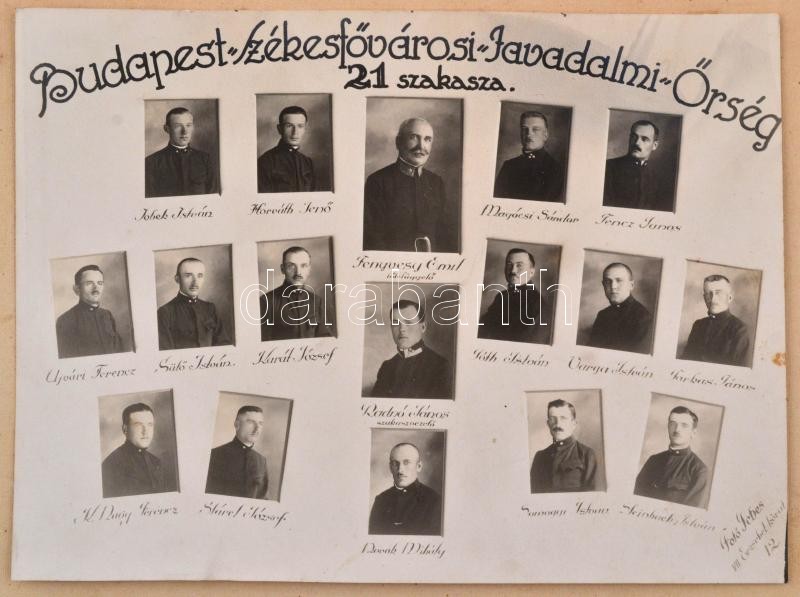 Budapest-Székesfővárosi-Javadalmi-Őrség
21 szakasza.
Jobek István
Horváth Jenő
Fenyvesy Emil
főfelügyelő
Magócsi Sándor
Fencz János
Ujvári Ferencz
Sütő István.
Karát József
Radnó János
szakaszvezető
Tóth István
Varga István
Farkas János
K. Nagy Ferencz
Starel József.
Novák Mihály
Somogyi István
Steinbach István
Fotó Jobes
VII Erzsébet körút
12
darabanth